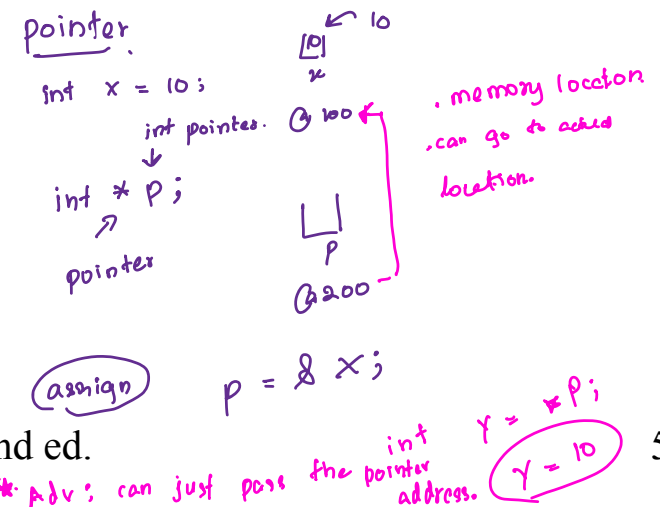 pointer.
10
10
x
int x = 10;
@ 100
. memory location
int pointer.
. can go to actual
location.
int * p;
pointer
p
@200
assign
p = & x;
nd ed.
int y = *p;
y = 10
5
* Adv: can just pass the pointer
address.